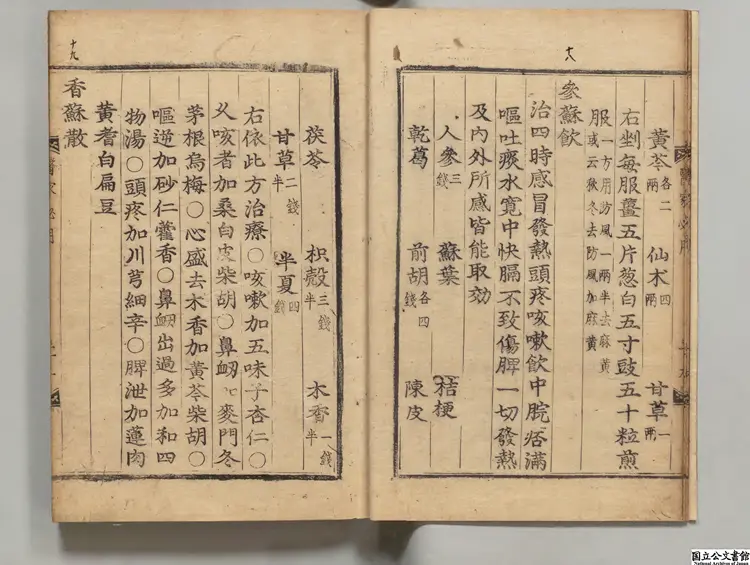 十八
黃芩各二兩 仙朮四兩 甘草一兩
右剉每服薑五片葱白五寸豉五十粒煎
服一方用防風一兩半去麻黃
或云秋冬去防風加麻黃
參蘇飲
治四時感冒發熱頭疼咳嗽飲中脘痞滿
嘔吐痰水寛中快膈不致傷脾一切發熱
及內外所感皆能取効
人參三錢 蘇葉 桔梗
乾葛 前胡各四錢 陳皮
十九
茯苓 枳殼三錢半 木香一錢半
甘草二錢半 半夏四錢
右依此方治療○咳嗽加五味子杏仁○
乆咳者加桑白皮柴胡○鼻衂加麥門冬
茅根烏梅○心盛去木香加黃芩柴胡○
嘔逆加砂仁藿香○鼻衂出過多加和四
物湯○頭疼加川芎細辛○脾泄加蓮肉
黃耆白扁豆
香蘇散
国立公文書館
National Archives of Japan